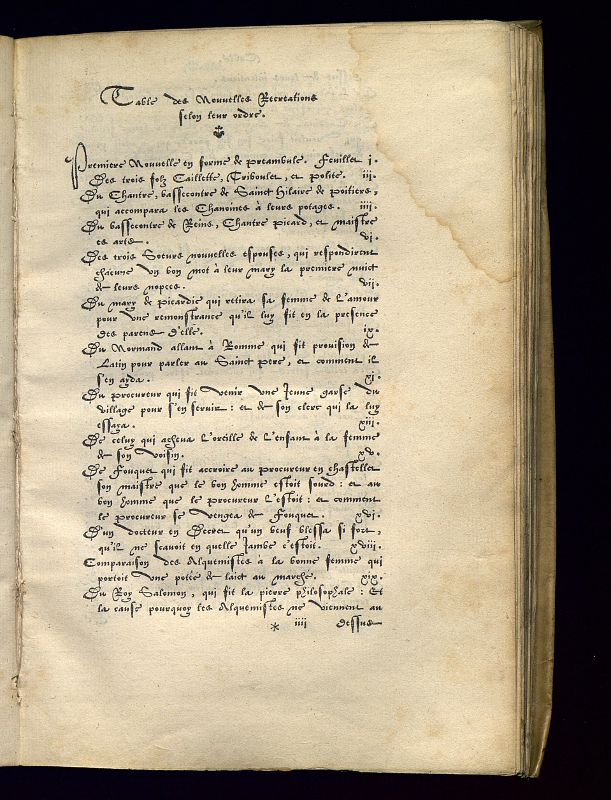 Table des Nouvelles Recreations
selon leur ordre.
Premiere Nouvelle en forme de preambule. Feuillet j.
Des trois folz Caillette, Triboulet, et Polite. iii.
Du Chantre, bassecontre de Sainct Hilaire de Poitiers,
qui accompara les Chanoines à leurs potages. iiii.
Du bassecontre de Reins, Chantre Picard, et maistre
es arts. vi.
Des trois Soeurs nouvelles espouses, qui respondirent
chacune un bon mot à leur mary la premiere nuict
de leurs nopces. vii.
Du mary de Picardie qui retira sa femme de l'amour
pour une remonstrance qu'il luy fit en la presence
des parens d'elle. ix.
Du Normand allant à Romme qui fit provision de
Latin pour parler au Sainct pere, et comment il
s'en ayda. xi.
Du procureur qui fit venir une Jeune garse du
village pour s'en servir: et de son clerc qui la luy
essaya. xiii.
De celuy qui acheva l'oreille de l'enfant à la femme
de son voisin. xv.
De Fouquet qui fit accroire au procureur en chastellet
son maistre que le bon homme estoit sourd: et au
bon homme que le procureur l'estoit: et comment
le procureur se vengea de Fouquet. xvi.
D'un docteur en Decret qu'un beuf blessa si fort,
qu'il ne scavoit en quelle Jambe c'estoit. xviii.
Comparaison des Alquemistes à la bonne femme qui
portoit une potée de laict au marché. xix.
Du Roy Salomon, qui fit la pierre philosophale: Et
la cause pourquoy les Alquemistes ne viennent au
* iiii dessus